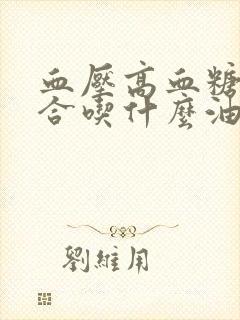 血壓高血糖
合喫什麼油
劉維用